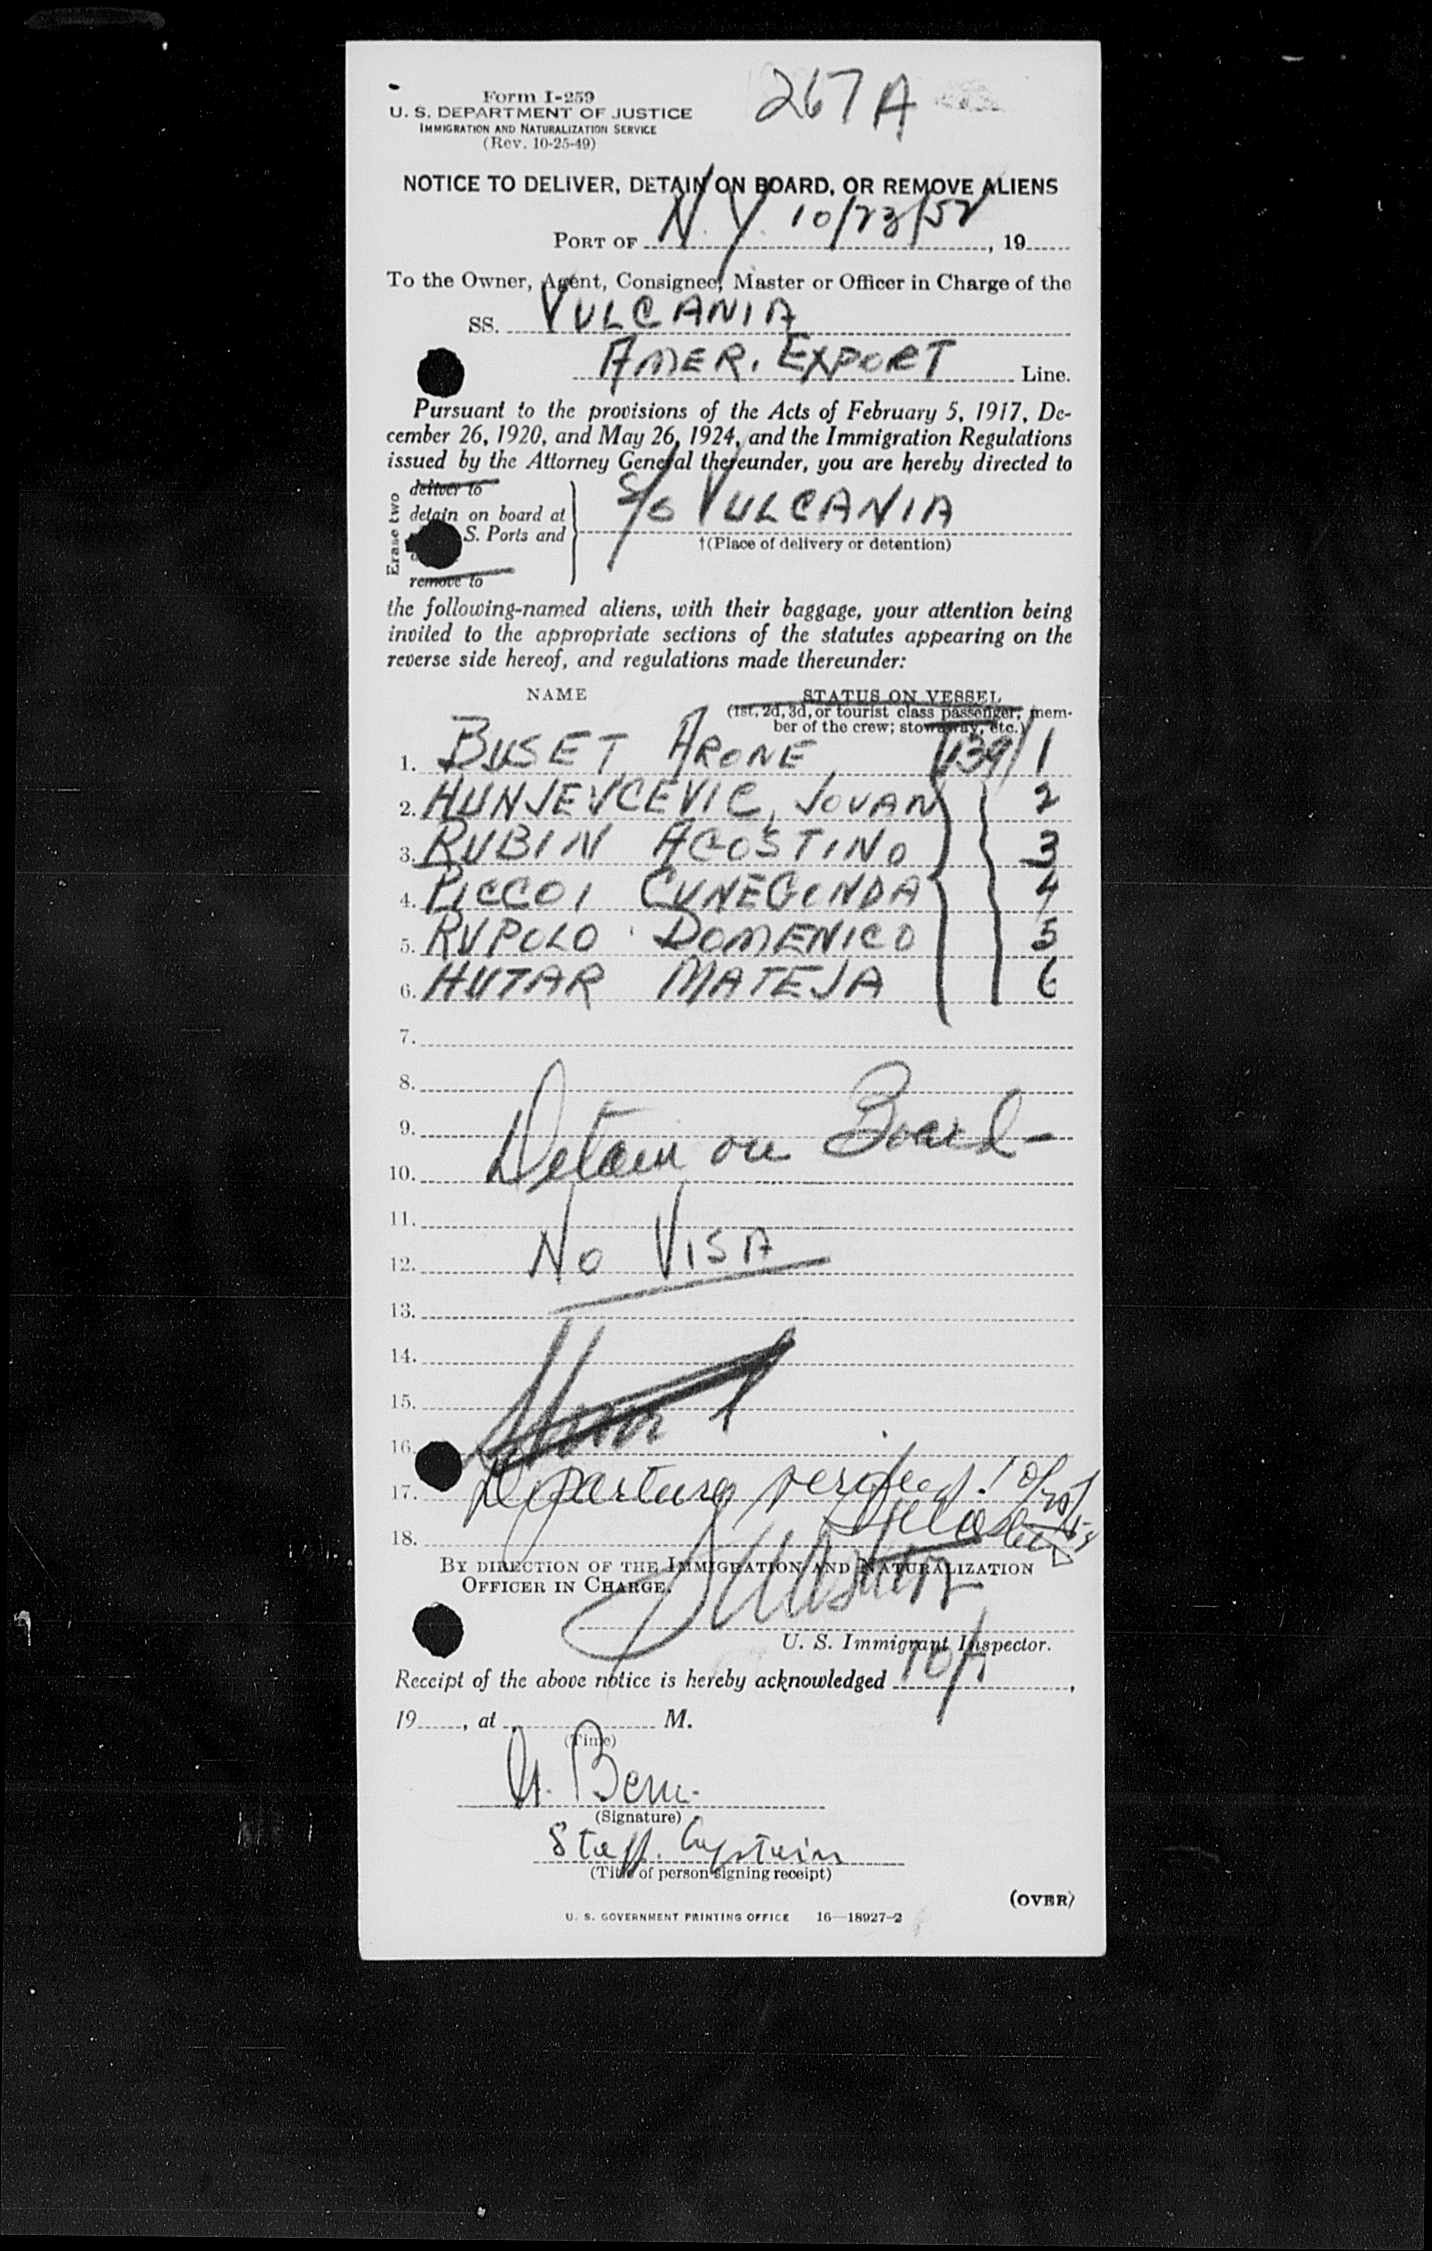 267 A
Form I-259
U. S. DEPARTMENT OF JUSTICE
IMMIGRATION AND NATURALIZATION SERVICE
(Rev. 10-25-49)
NOTICE TO DELIVER, DETAIN ON BOARD, OR REMOVE ALIENS
PORT OF N.Y. 10/23/52, 19
To the Owner, Agent, Consignee, Master or Officer in Charge of the
SS. VULCANIA
AMER. EXPORT Line.
Pursuant to the provisions of the Acts of February 5, 1917, De-
cember 26, 1920, and May 26, 1924, and the Immigration Regulations
issued by the Attorney General thereunder, you are hereby directed to
Erase two
deliver to
detain on board at
S. Ports and
remove to
S/S VULCANIA
†(Place of delivery or detention)
the following-named aliens, with their baggage, your attention being
invited to the appropriate sections of the statutes appearing on the
reverse side hereof, and regulations made thereunder:
NAME
STATUS ON VESSEL
(1st, 2d, 3d, or tourist class passenger; mem-
ber of the crew; stowaway, etc.)
1. BUSET ARONE V39/1
2. HUNJEVCEVIC, JOVAN 2
3. RUBIN AGOSTINO 3
4. PICCOI CUNEGONDA 4
5. RUPOLO DOMENICO 5
6. HUTAR MATEJA 6
7.
8.
9.
Detain on Board-
10.
11.
12. NO VISA
13.
14.
15.
16.
17. Departure verified
18.
BY DIRECTION OF THE IMMIGRATION AND NATURALIZATION
OFFICER IN CHARGE.
U. S. Immigrant Inspector.
Receipt of the above notice is hereby acknowledged 10A,
19, at M.
(Time)
(Signature)
Staff. Captain
(Title of person signing receipt)
(OVER)
U. S. GOVERNMENT PRINTING OFFICE 16—18927-2